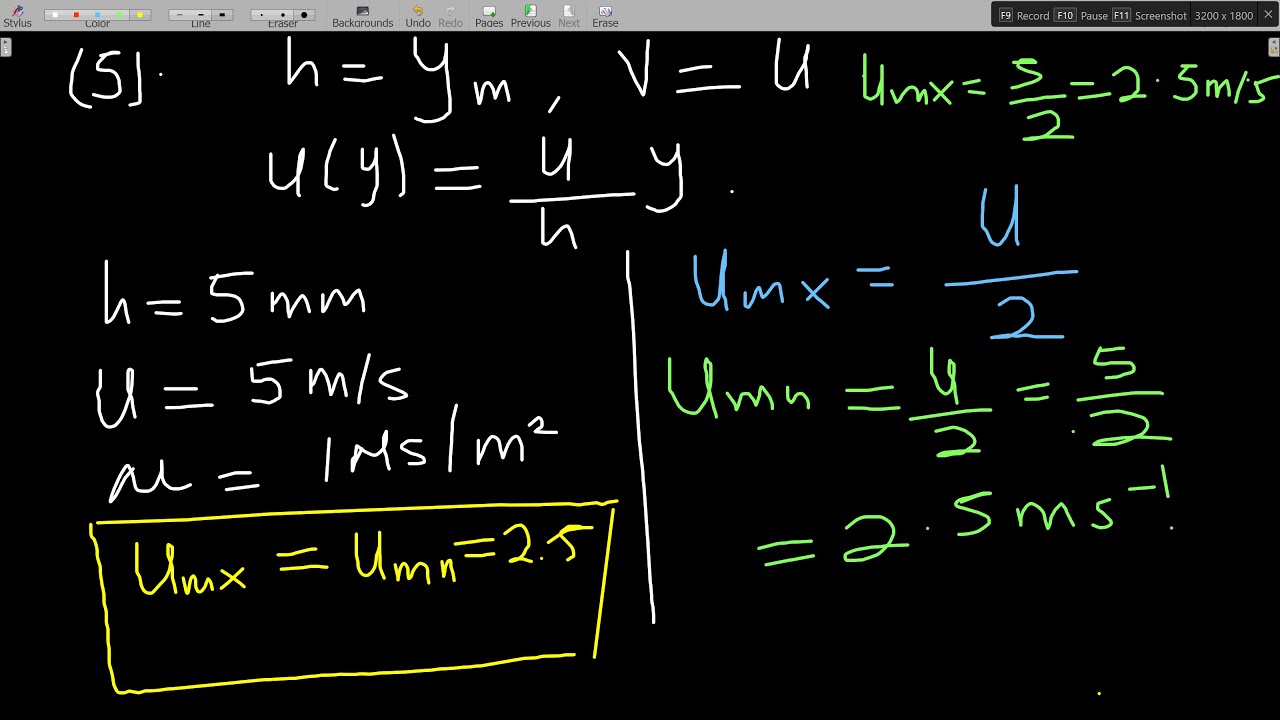 Stylus Color Line Eraser Backgrounds Undo Redo Pages Previous Next Erase
F9 Record F10 Pause F11 Screenshot 3200 x 1800
(5). h = y m , v = u
u(y) = u/h y .
h = 5 mm
u = 5 m/s
μ = 1 Ns/m²
u mx = u mn = 2.5
u mx = 5/2 = 2.5 m/s
u mx = u/2
u mn = u/2 = 5/2
= 2.5 m s⁻¹